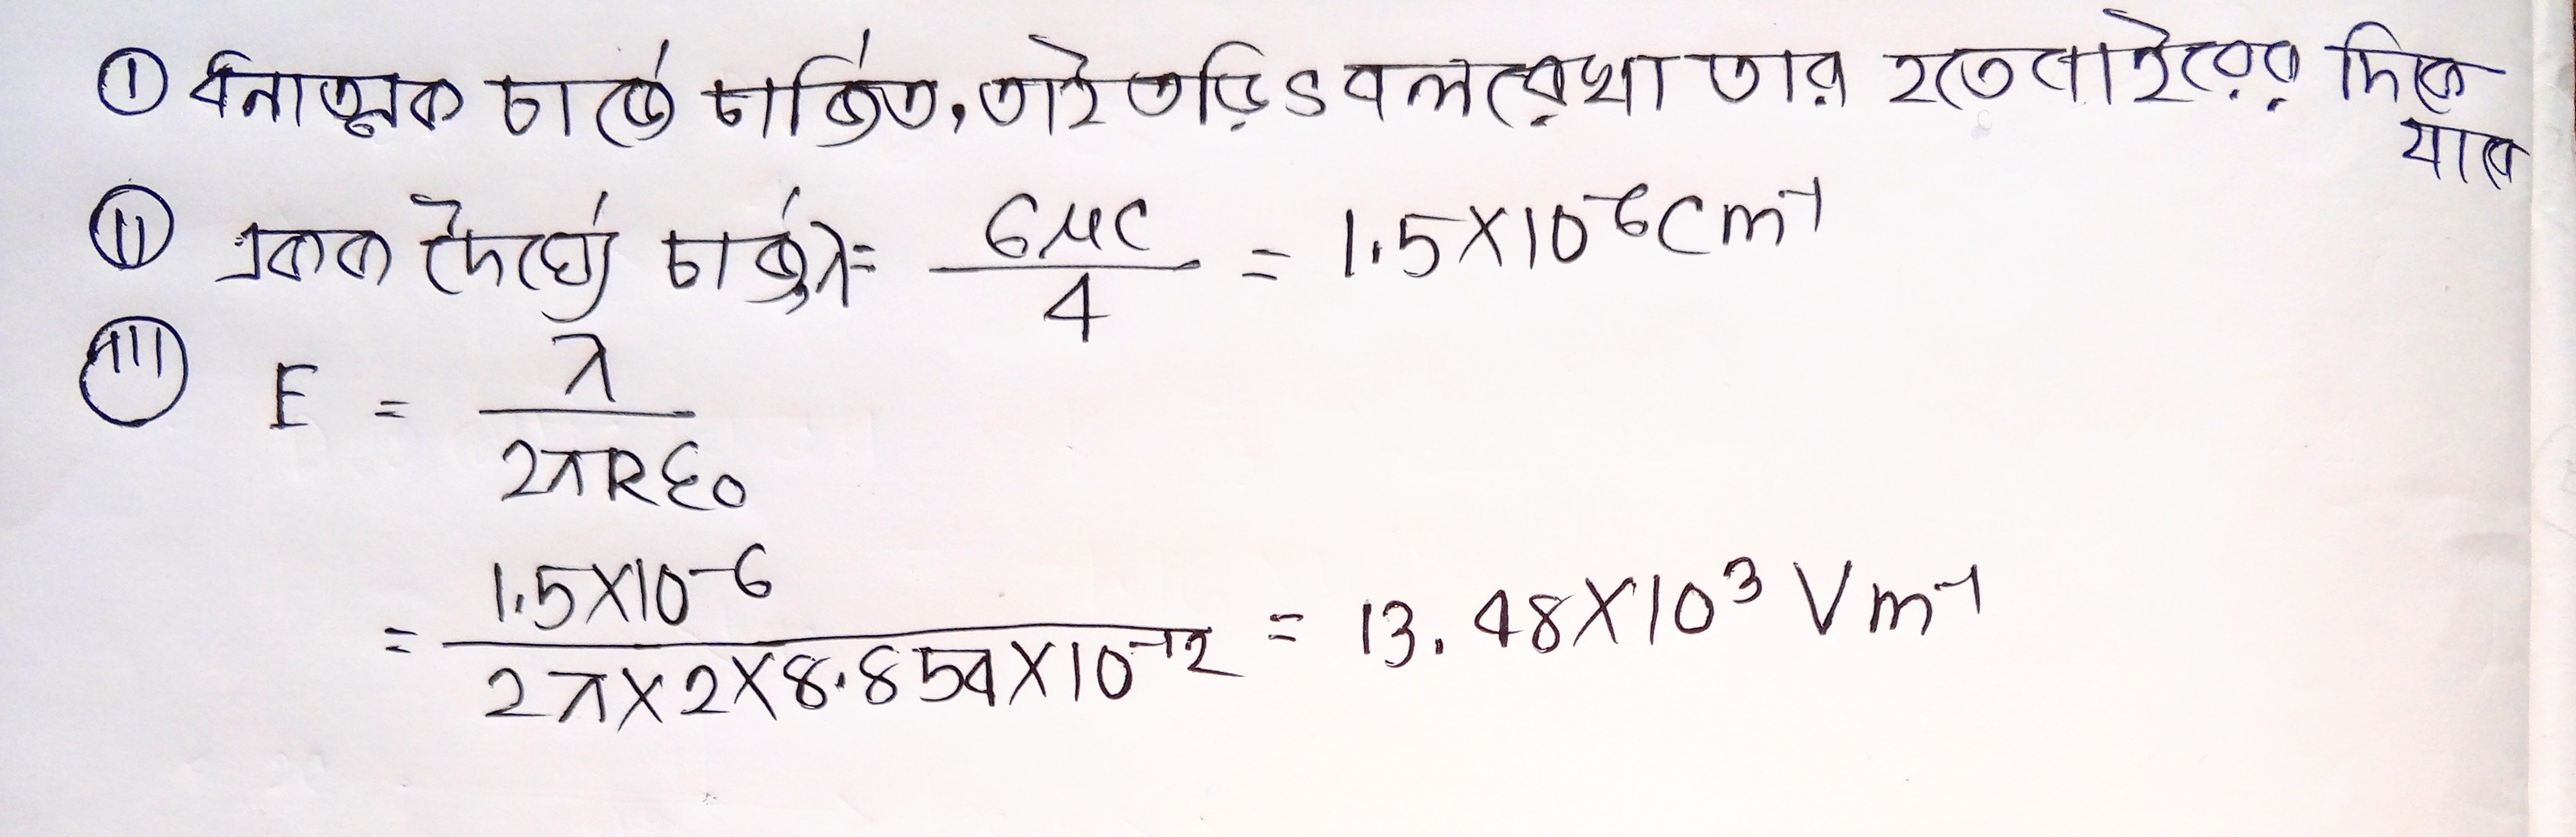 ① ধনাত্মক চার্জে চার্জিত, তাই তড়িৎ বলরেখা তার হতে বাইরের দিকে
যাবে
② একক দৈর্ঘ্যে চার্জ, λ = 6μC / 4 = 1.5×10⁻⁶ C m⁻¹
③ E = λ / 2πRε₀
= 1.5×10⁻⁶ / 2π×2×8.854×10⁻¹² = 13.48×10³ V m⁻¹